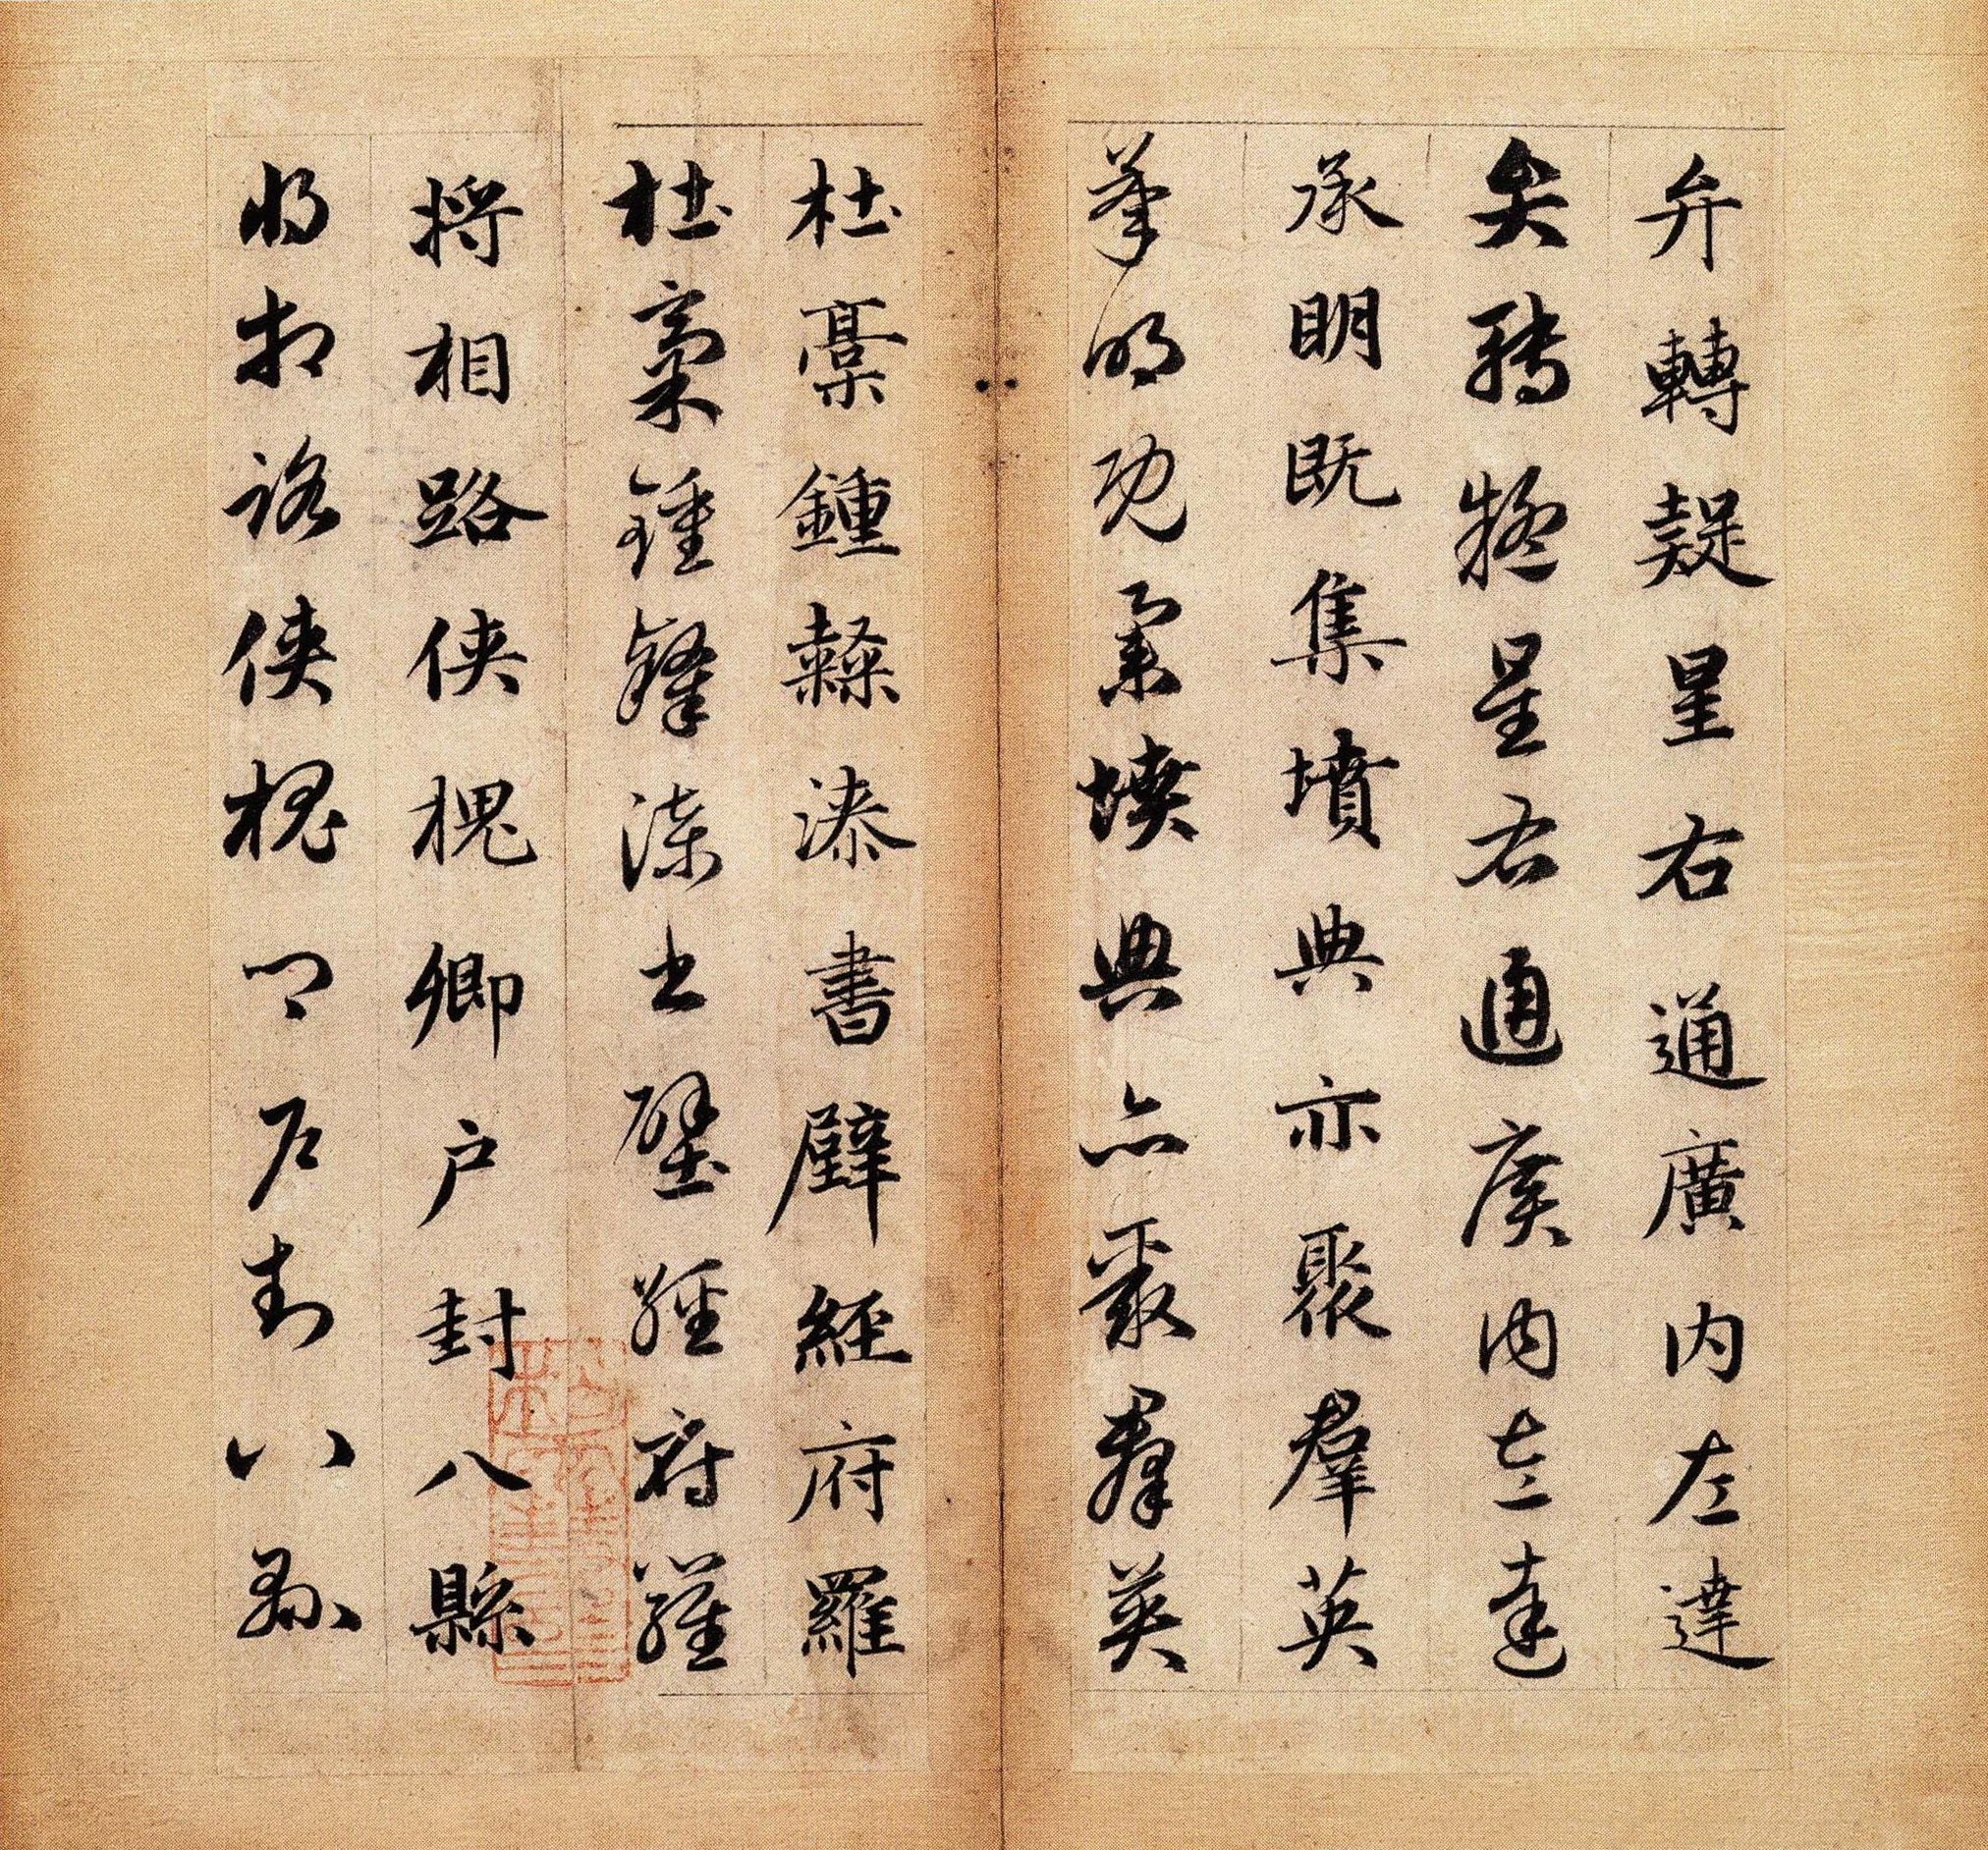 弁轉疑星右通廣内左達
弁轉疑星右通廣内左達
承明既集墳典亦聚羣英
承明既集墳典亦聚羣英
杜稾鍾隸漆書壁經府羅
杜稾鍾隸漆書壁經府羅
將相路俠槐卿户封八縣
將相路俠槐卿户封八縣